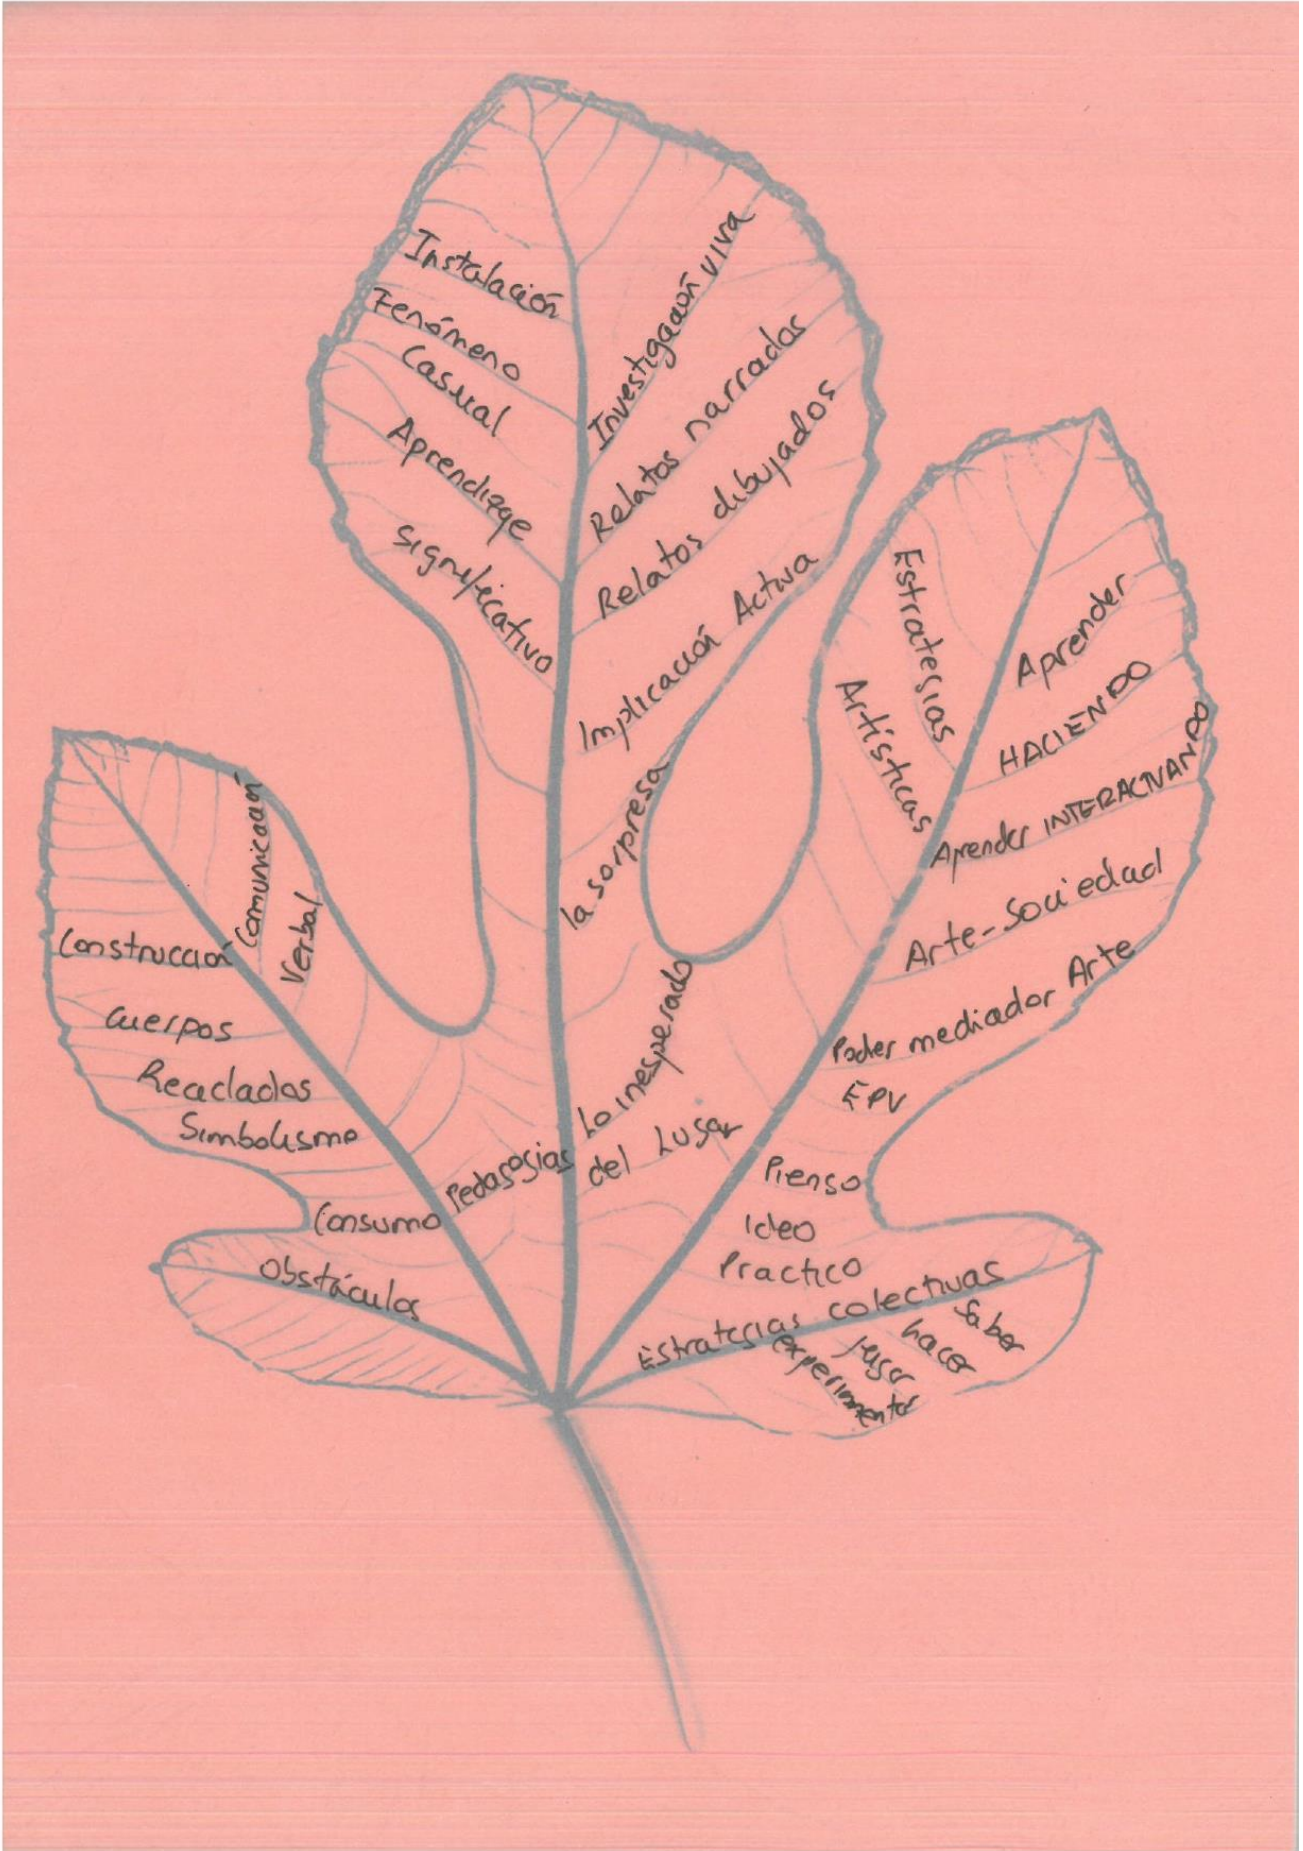 Instalación
Fenómeno
Casual
Aprendizaje
Significativo
Investigación viva
Relatos narrados
Relatos dibujados
Implicación Activa
la sorpresa
Lo inesperado
del Lugar
Pedagogías
Estrategias
Artísticas
Aprender
HACIENDO
Aprender INTERACTUANDO
Arte-Sociedad
Poder mediador Arte
EPV
Pienso
Ideo
Practico
Estrategias colectivas
Saber
hacer
jugar
experimentar
Comunicación
Verbal
Construcción
cuerpos
Reciclados
Simbolismo
Consumo
Obstáculos